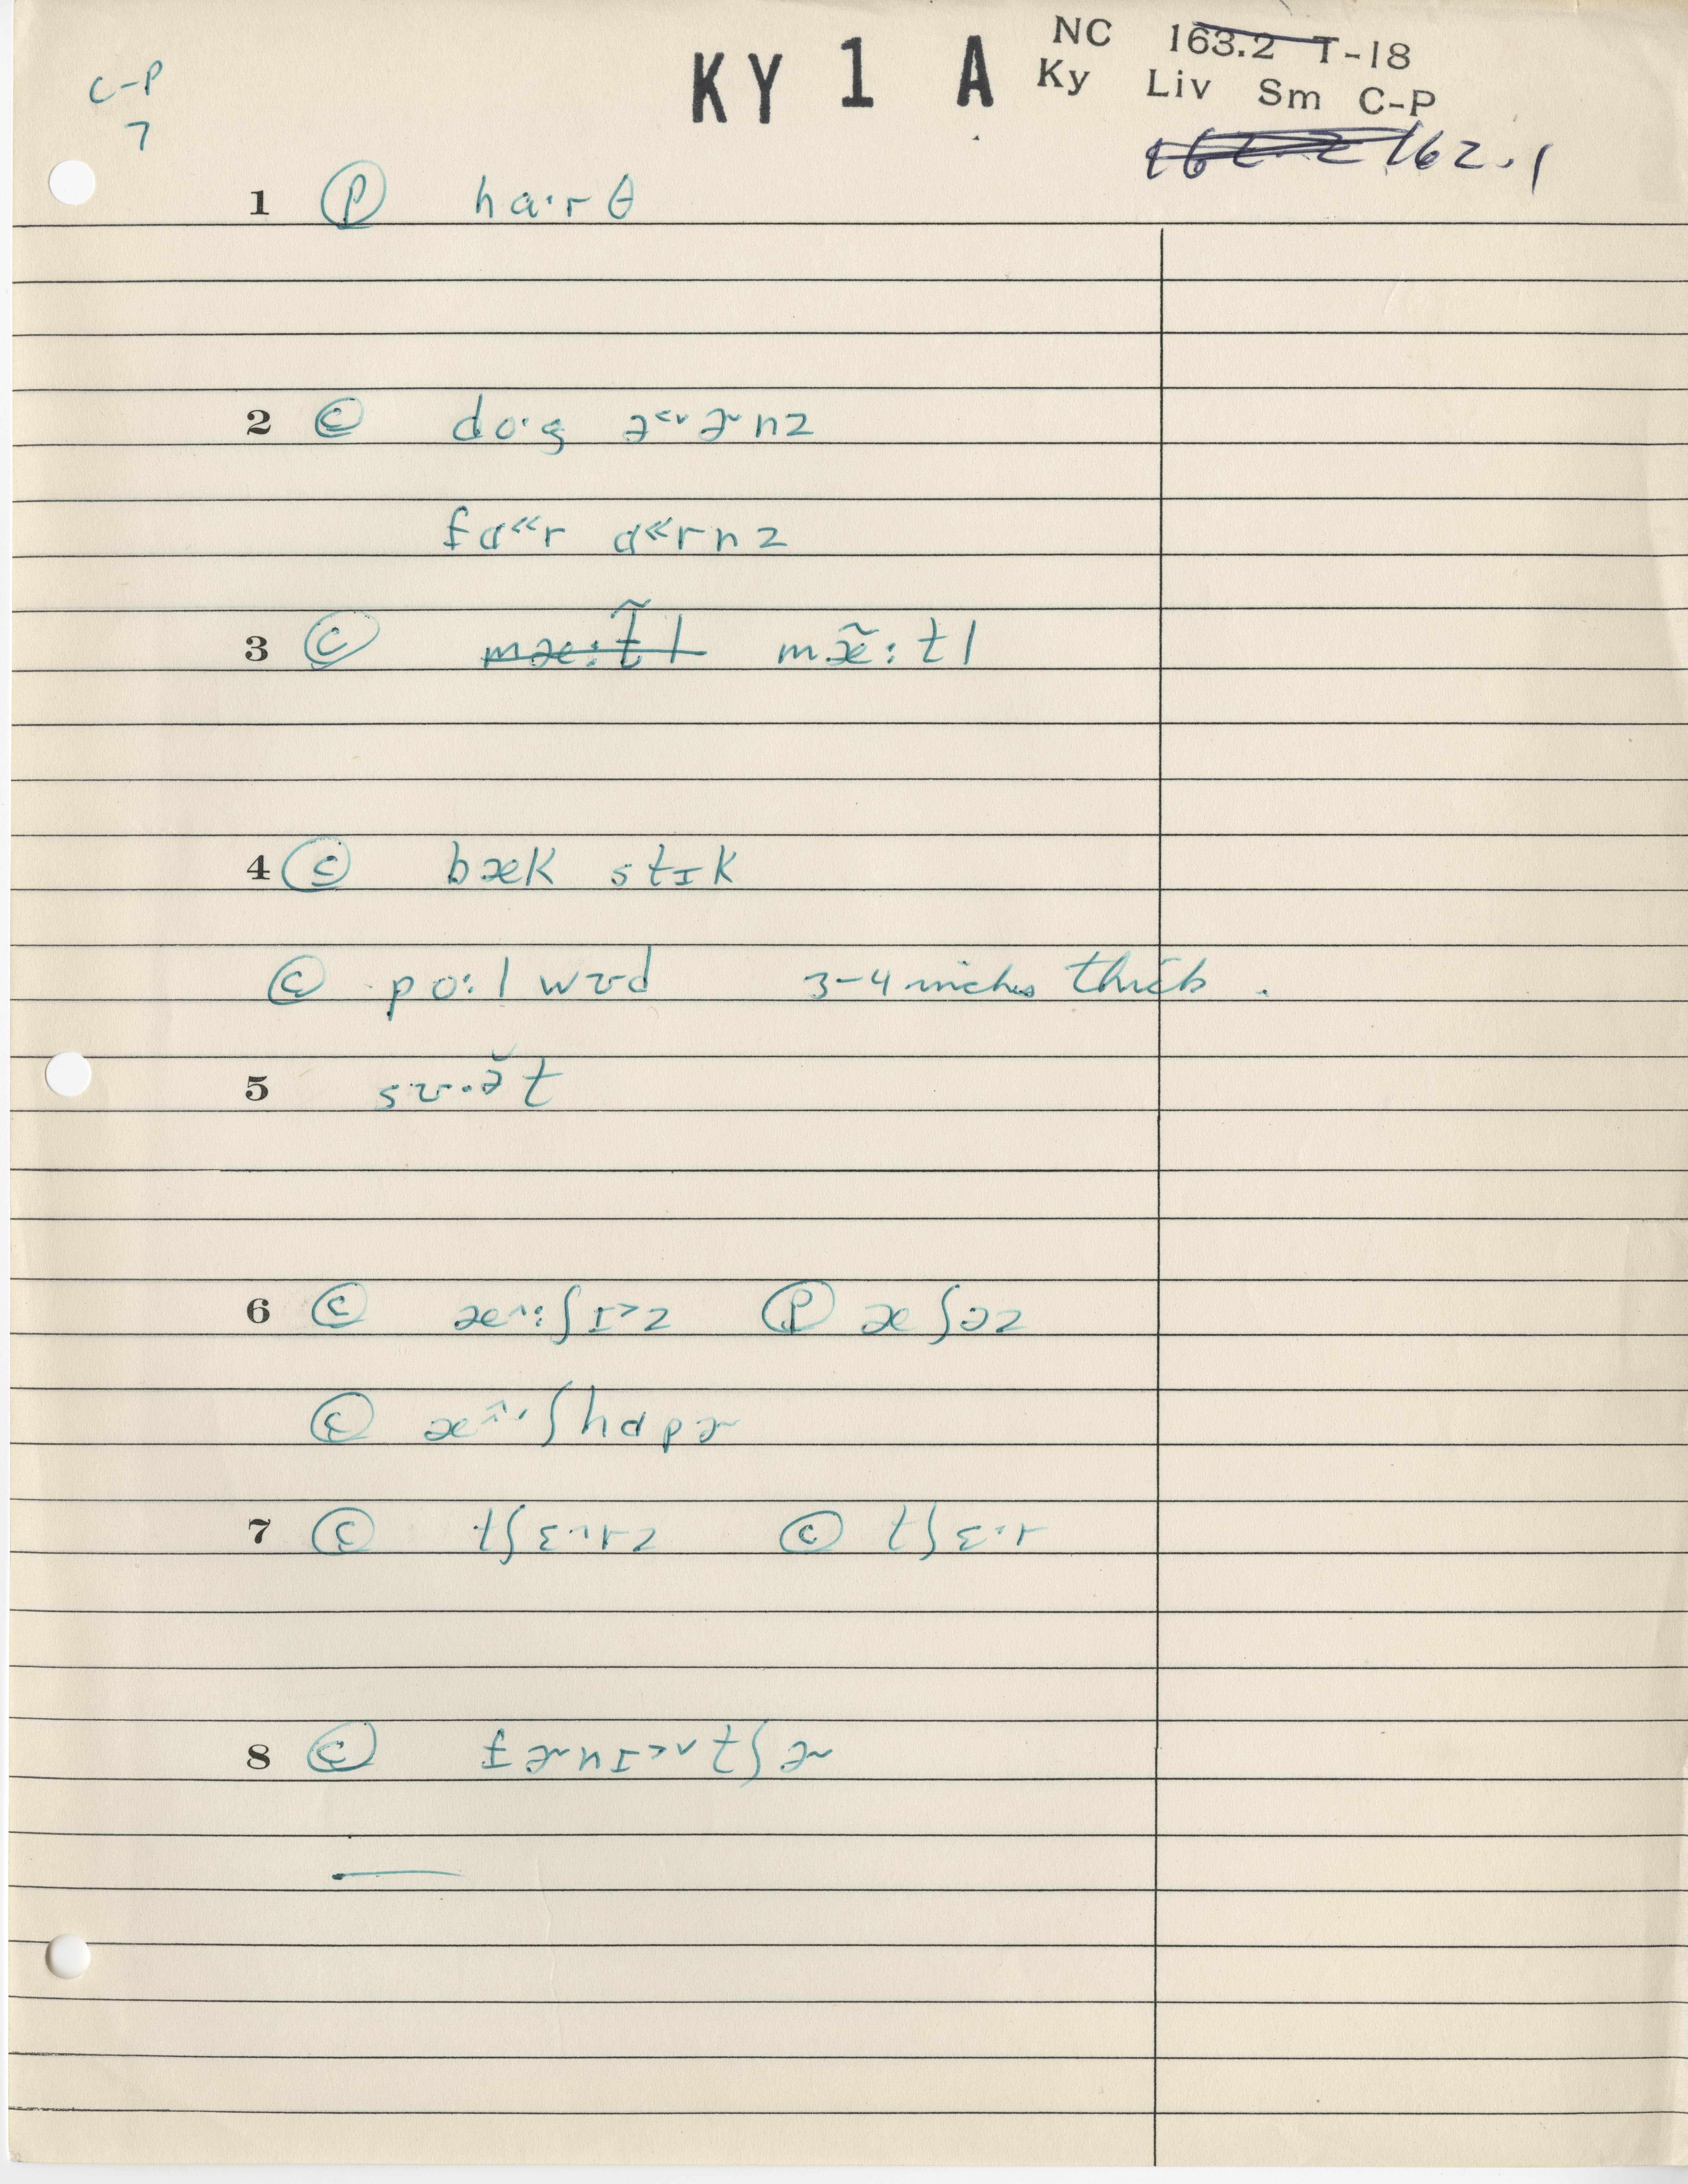 C-P
7
KY 1 A
NC 163.2 T-18
Ky Liv Sm C-P
162.1
1 Ⓟ ha·rθ
2 Ⓒ dɒ·g ə<vɚnz
fɑ≪r ɑ≪rnz
3 Ⓒ mæ:t̃l mæ̃:tl
4 Ⓒ bæk stɪk
Ⓒ po:lwʊd 3-4 inches thick.
5 sʊ·ə̆t
6 Ⓒ æ^:ʃɪ>z Ⓟ æʃəz
Ⓒ æ^·ʃhɑpɚ
7 Ⓒ tʃɛ·^rz Ⓒ tʃɛ·r
8 Ⓒ fɚnɪ>vtʃɚ